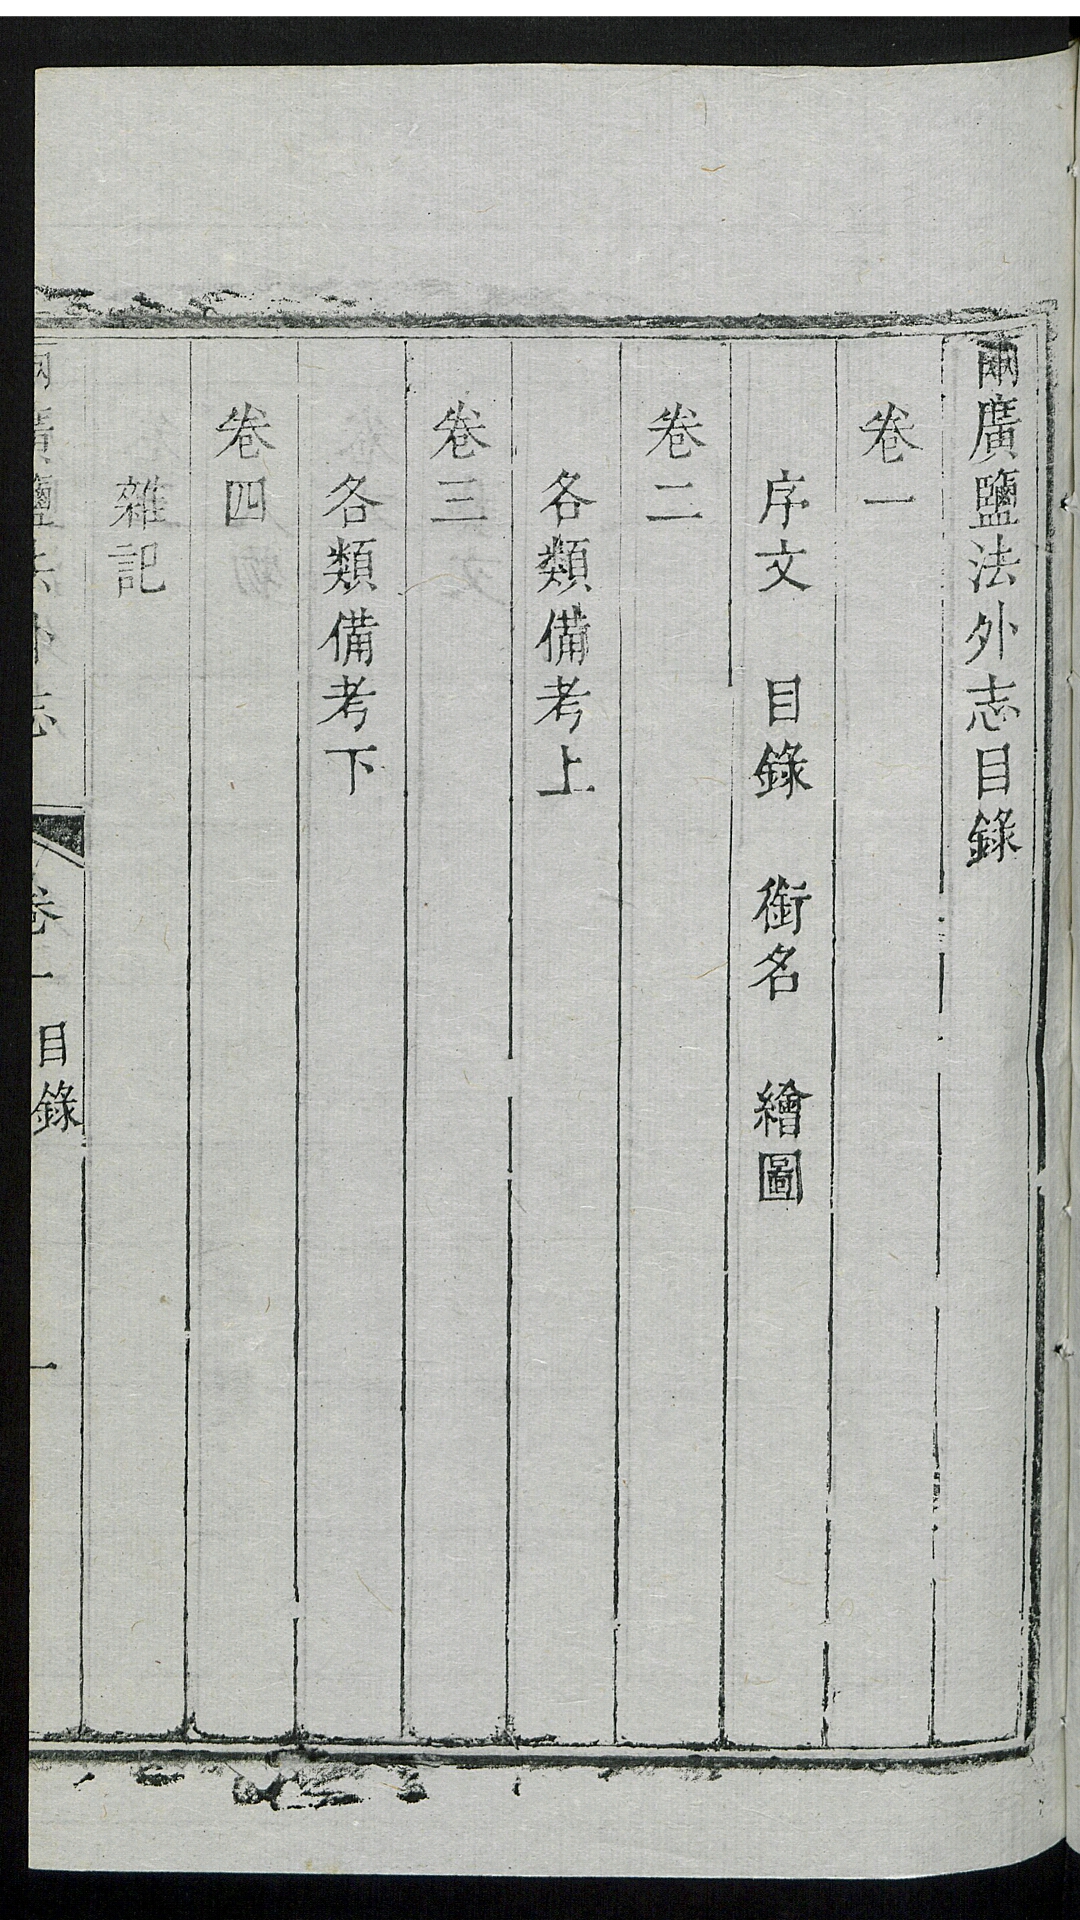 兩廣鹽法外志目錄
卷一
序文 目錄 銜名 繪圖
卷二
各類備考上
卷三
各類備考下
卷四
雜記
兩廣鹽法外志 卷一 目錄 一